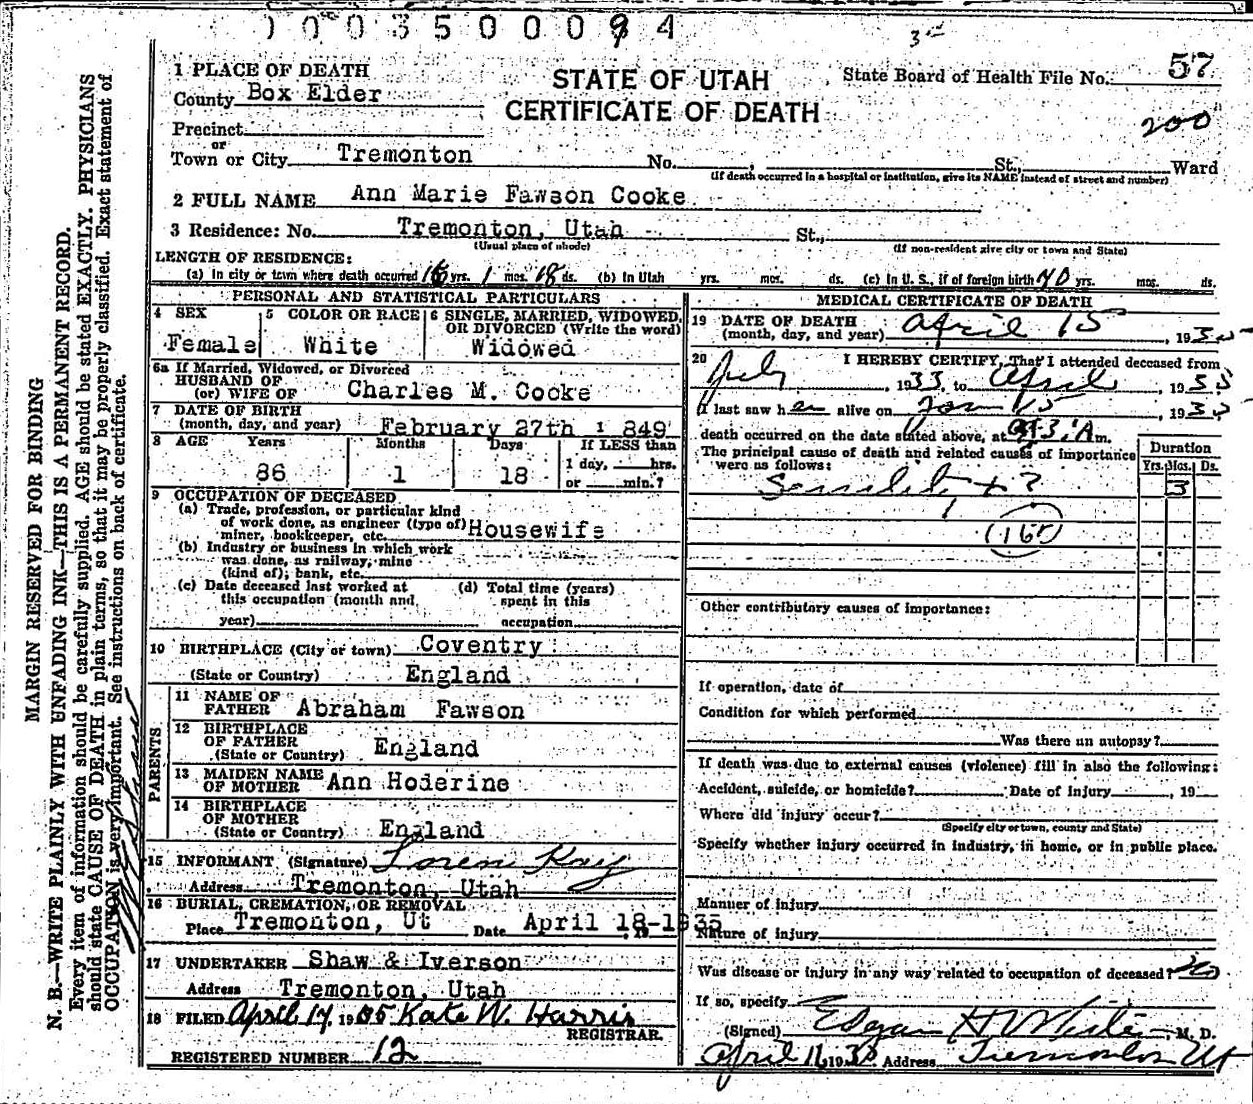 1003500094
57
200
STATE OF UTAH
CERTIFICATE OF DEATH
State Board of Health File No.
1 PLACE OF DEATH
County Box Elder
Precinct
or
Town or City Tremonton No. , St., Ward
(If death occurred in a hospital or institution, give its NAME instead of street and number)
2 FULL NAME Ann Marie Fawson Cooke
3 Residence: No. Tremonton, Utah St.,
(Usual place of abode) (If non-resident give city or town and State)
LENGTH OF RESIDENCE:
(a) In city or town where death occurred yrs. 1 mos. 18 ds. (b) In Utah yrs. mos. ds. (c) In U. S., if of foreign birth 70 yrs. mos. ds.
PERSONAL AND STATISTICAL PARTICULARS
4 SEX Female
5 COLOR OR RACE White
6 SINGLE, MARRIED, WIDOWED, OR DIVORCED (Write the word) Widowed
6a If Married, Widowed, or Divorced
HUSBAND OF
(or) WIFE OF Charles M. Cooke
7 DATE OF BIRTH
(month, day, and year) February 27th 1849
8 AGE Years Months Days If LESS than
86 1 18 1 day, hrs.
or min.?
9 OCCUPATION OF DECEASED
(a) Trade, profession, or particular kind
of work done, as engineer (type of)
miner, bookkeeper, etc. Housewife
(b) Industry or business in which work
was done, as railway, mine
(kind of); bank, etc.
(c) Date deceased last worked at
this occupation (month and
year)
(d) Total time (years)
spent in this
occupation
10 BIRTHPLACE (City or town) Coventry
(State or Country) England
PARENTS
11 NAME OF
FATHER Abraham Fawson
12 BIRTHPLACE
OF FATHER
(State or Country) England
13 MAIDEN NAME
OF MOTHER Ann Hoderine
14 BIRTHPLACE
OF MOTHER
(State or Country) England
15 INFORMANT (Signature) Loren Kay
Address Tremonton, Utah
16 BURIAL, CREMATION, OR REMOVAL
Place Tremonton, Ut Date April 18-1935
17 UNDERTAKER Shaw & Iverson
Address Tremonton, Utah
18 FILED April 17, 1935 Kate W. Harris
REGISTRAR.
REGISTERED NUMBER 12
MEDICAL CERTIFICATE OF DEATH
19 DATE OF DEATH
(month, day, and year) April 15, 1935
20 I HEREBY CERTIFY, That I attended deceased from
July, 1933, to April, 1935
I last saw her alive on 15, 1935
death occurred on the date stated above, at 3 A m.
The principal cause of death and related causes of importance
were as follows:
Duration
Yrs. Mos. Ds.
3
Senility + ?
Other contributory causes of importance:
If operation, date of
Condition for which performed
Was there an autopsy?
If death was due to external causes (violence) fill in also the following:
Accident, suicide, or homicide? Date of injury , 19
Where did injury occur?
(Specify city or town, county and State)
Specify whether injury occurred in industry, in home, or in public place.
Manner of injury
Nature of injury
Was disease or injury in any way related to occupation of deceased? no
If so, specify
(Signed) , M. D.
April 1935 Address Tremonton Ut
MARGIN RESERVED FOR BINDING
N. B.—WRITE PLAINLY WITH UNFADING INK—THIS IS A PERMANENT RECORD.
Every item of information should be carefully supplied. AGE should be stated EXACTLY. PHYSICIANS
should state CAUSE OF DEATH in plain terms, so that it may be properly classified. Exact statement of
OCCUPATION is very important. See instructions on back of certificate.